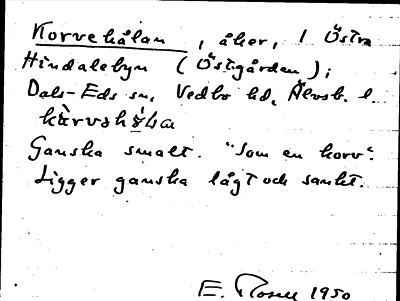 Korvehålan, åker, i Östra
Hindalebyn (Östgården);
Dals-Eds sn, Vedbo hd, Älvsb. l.
Ganska smalt. "Som en korv".
Ligger ganska lågt och sankt.
E. Rosell 1950